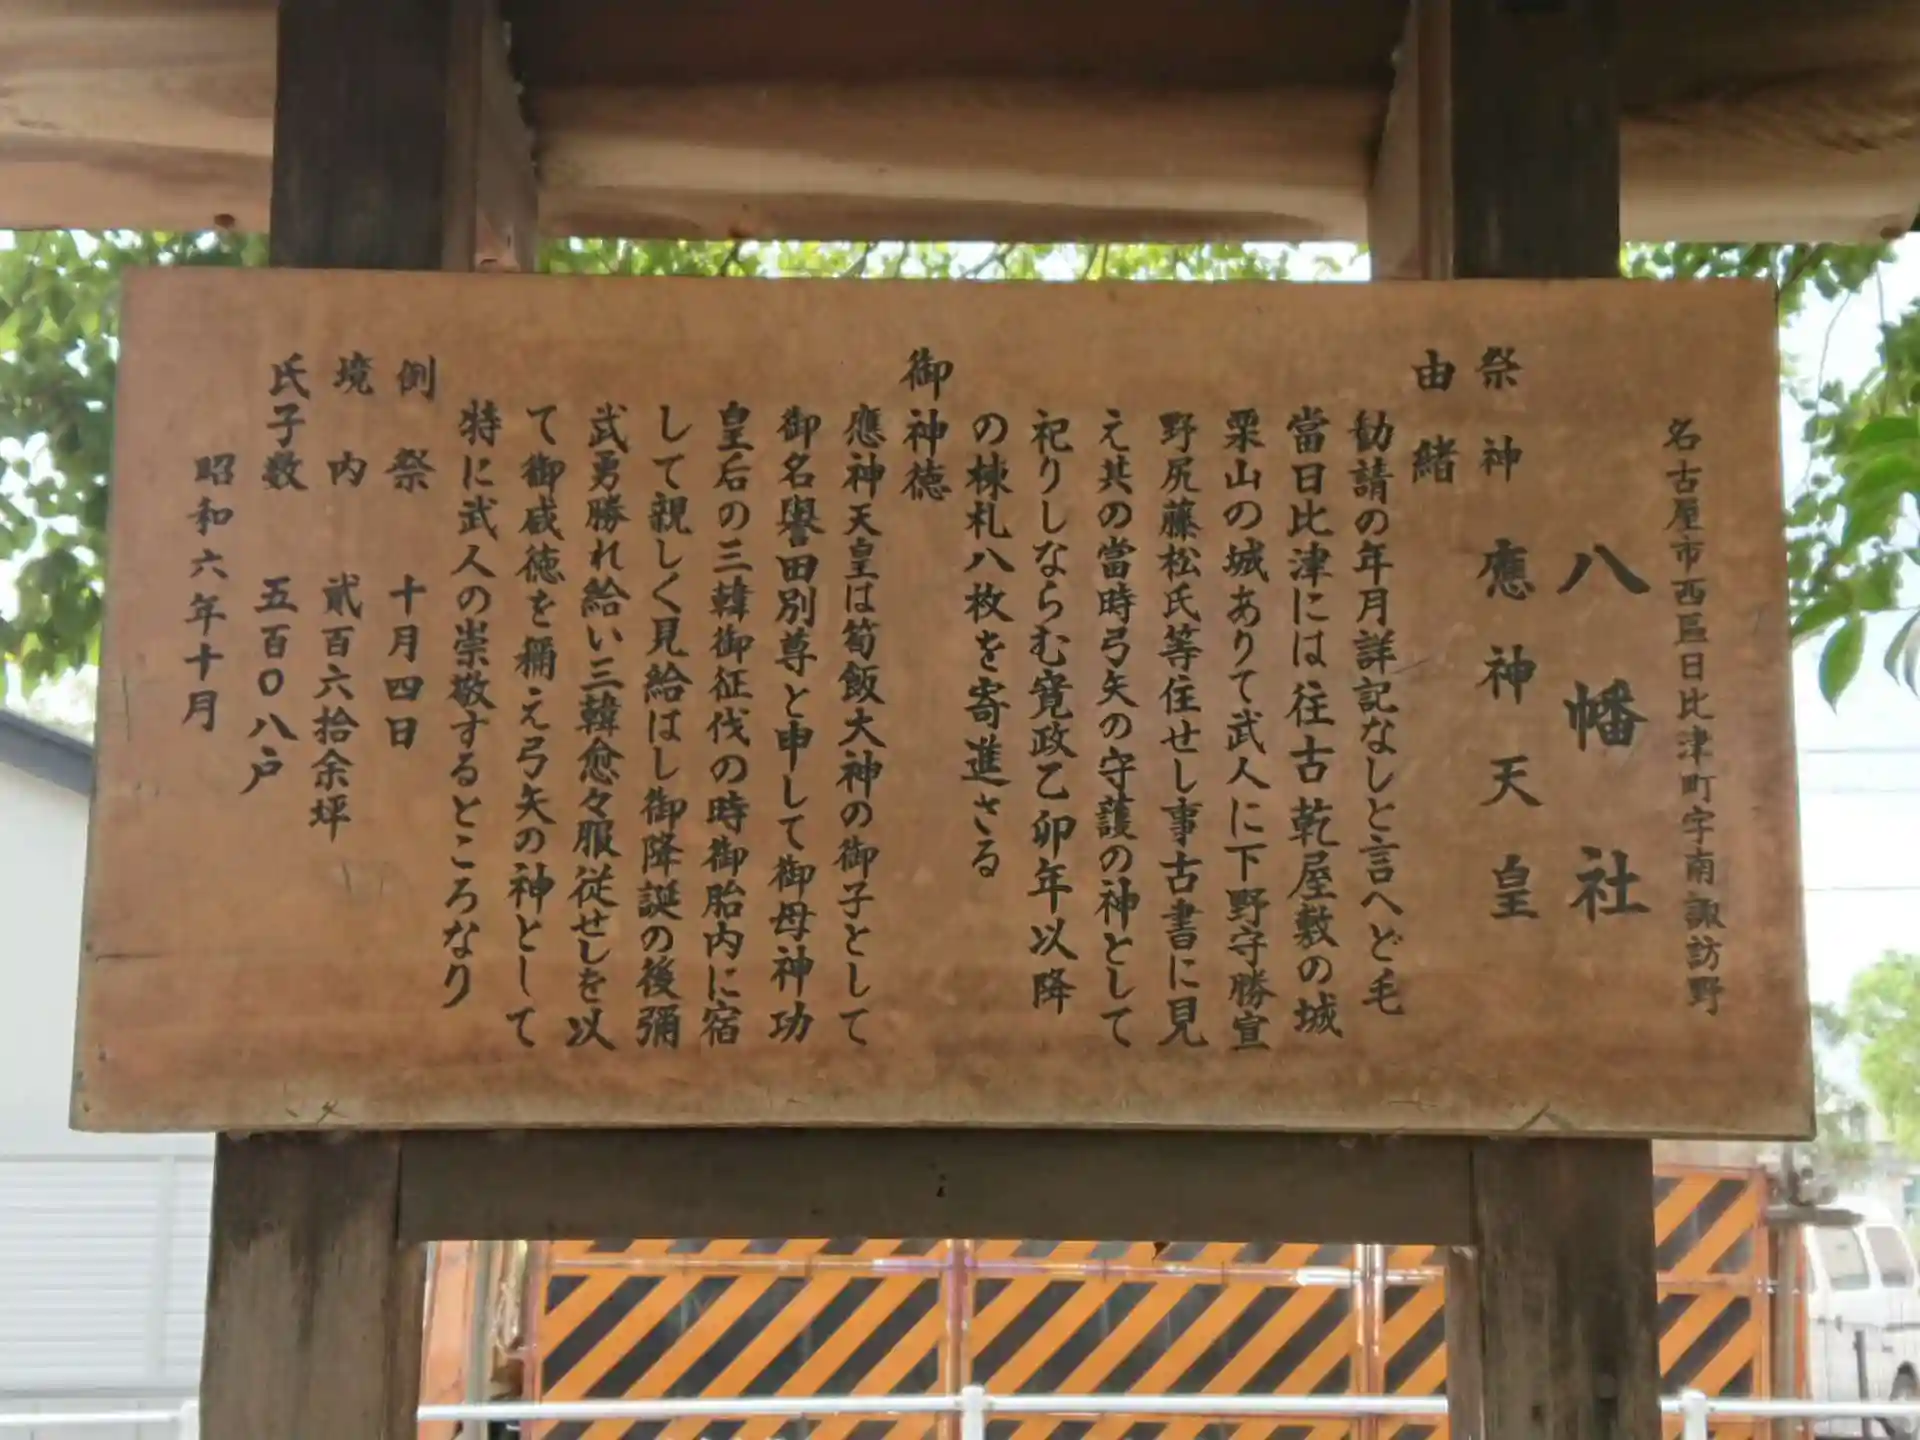 名古屋市西區日比津町字南諏訪野
八幡社
祭神 應神天皇
由緒
勧請の年月詳記なしと言へど毛
當日比津には往古乾屋敷の城
栗山の城ありて武人に下野守勝宣
野尻藤松氏等住せし事古書に見
え共の當時弓矢の守護の神として
祀りしならむ寛政乙卯年以降
の棟札八枚を寄進さる
御神徳
應神天皇は筍飯大神の御子として
御名譽田別尊と申して御母神功
皇后の三韓御征伐の時御胎内に宿
して親しく見給はし御降誕の後彌
武勇勝れ給い三韓愈々服従せしを以
て御威徳を稱え弓矢の神として
特に武人の崇敬するところなり
例祭 十月四日
境内 貳百六拾余坪
氏子数 五百〇八戸
昭和六年十月